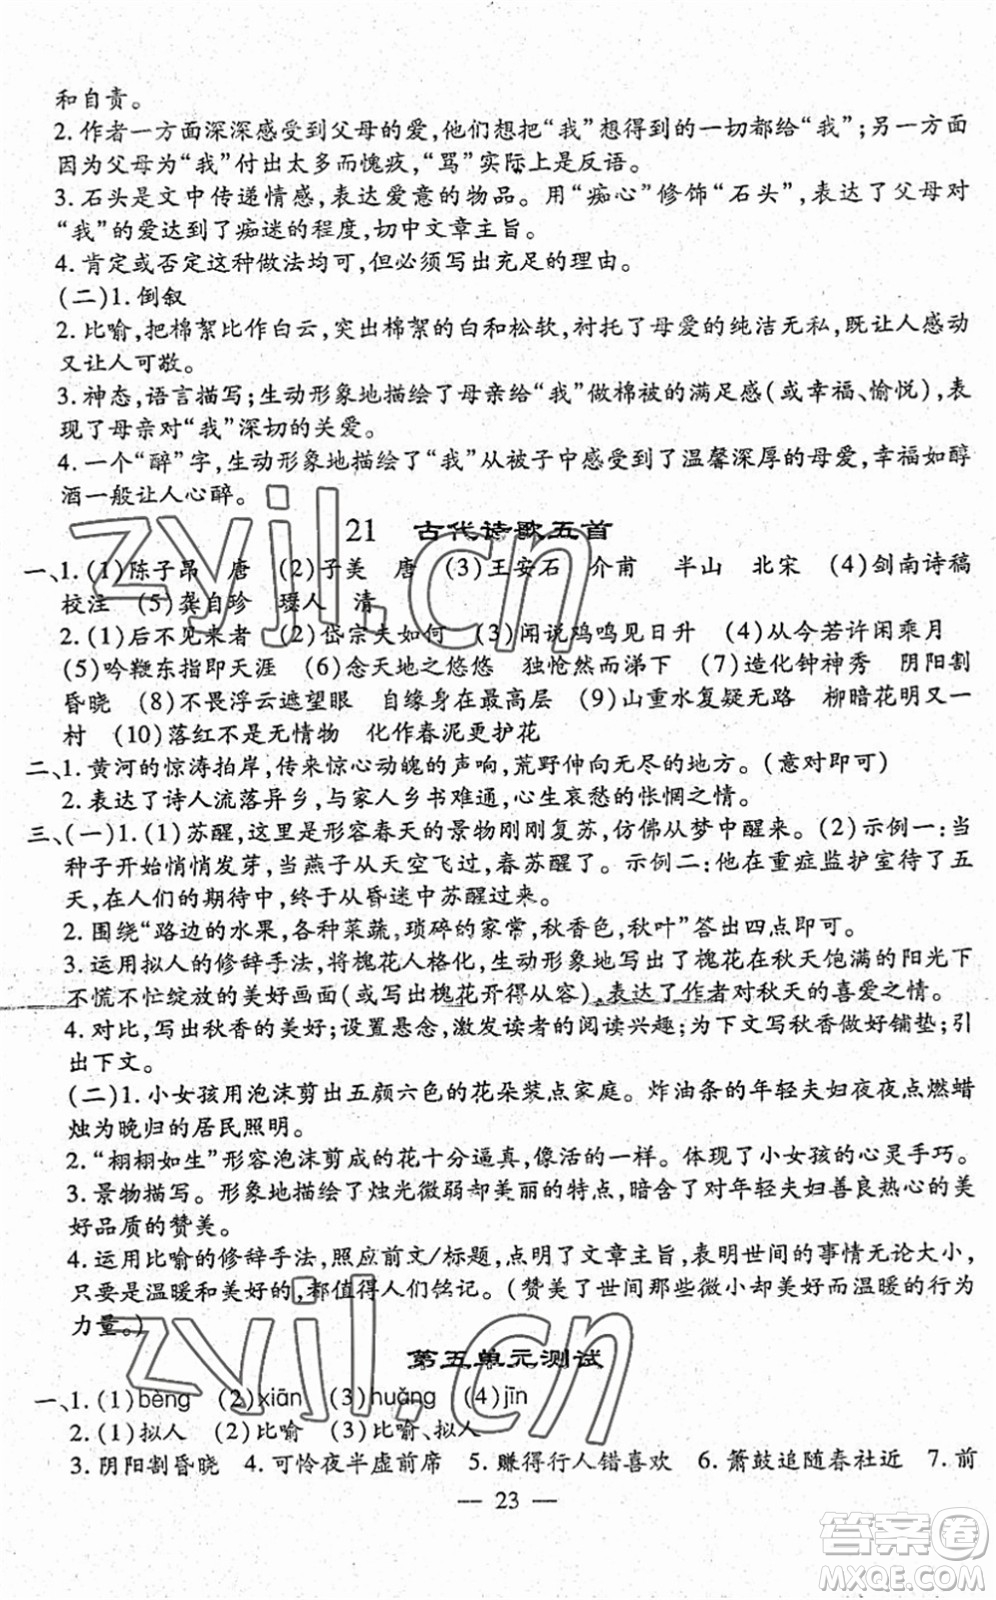 和自责。
2. 作者一方面深深感受到父母的爱,他们想把“我”想得到的一切都给“我”;另一方面
因为父母为“我”付出太多而愧疚,“骂”实际上是反语。
3. 石头是文中传递情感,表达爱意的物品。用“痴心”修饰“石头”,表达了父母对
“我”的爱达到了痴迷的程度,切中文章主旨。
4. 肯定或否定这种做法均可,但必须写出充足的理由。
(二)1. 倒叙
2. 比喻,把棉絮比作白云,突出棉絮的白和松软,衬托了母爱的纯洁无私,既让人感动
又让人可敬。
3. 神态,语言描写;生动形象地描绘了母亲给“我”做棉被的满足感(或幸福、愉悦),表
现了母亲对“我”深切的关爱。
4. 一个“醉”字,生动形象地描绘了“我”从被子中感受到了温馨深厚的母爱,幸福如醇
酒一般让人心醉。
21 古代诗歌五首
一、1. (1)陈子昂 唐 (2)子美 唐 (3)王安石 介甫 半山 北宋 (4)剑南诗稿
校注 (5)龚自珍 璱人 清
2. (1)后不见来者 (2)岱宗夫如何 (3)闻说鸡鸣见日升 (4)从今若许闲乘月
(5)吟鞭东指即天涯 (6)念天地之悠悠 独怆然而涕下 (7)造化钟神秀 阴阳割
昏晓 (8)不畏浮云遮望眼 自缘身在最高层 (9)山重水复疑无路 柳暗花明又一
村 (10)落红不是无情物 化作春泥更护花
二、1. 黄河的惊涛拍岸,传来惊心动魄的声响,荒野伸向无尽的地方。(意对即可)
2. 表达了诗人流落异乡,与家人乡书难通,心生哀愁的怅惘之情。
三、(一)1. (1)苏醒,这里是形容春天的景物刚刚复苏,仿佛从梦中醒来。(2)示例一:当
种子开始悄悄发芽,当燕子从天空飞过,春苏醒了。示例二:他在重症监护室待了五
天,在人们的期待中,终于从昏迷中苏醒过来。
2. 围绕“路边的水果,各种菜蔬,琐碎的家常,秋香色,秋叶”答出四点即可。
3. 运用拟人的修辞手法,将槐花人格化,生动形象地写出了槐花在秋天饱满的阳光下
不慌不忙绽放的美好画面(或写出槐花开得从容),表达了作者对秋天的喜爱之情。
4. 对比,写出秋香的美好;设置悬念,激发读者的阅读兴趣;为下文写秋香做好铺垫;引
出下文。
(二)1. 小女孩用泡沫剪出五颜六色的花朵装点家庭。炸油条的年轻夫妇夜夜点燃蜡
烛为晚归的居民照明。
2. “栩栩如生”形容泡沫剪成的花十分逼真,像活的一样。体现了小女孩的心灵手巧。
3. 景物描写。形象地描绘了烛光微弱却美丽的特点,暗含了对年轻夫妇善良热心的美
好品质的赞美。
4. 运用比喻的修辞手法,照应前文/标题,点明了文章主旨,表明世间的事情无论大小,
只要是温暖和美好的,都值得人们铭记。(赞美了世间那些微小却美好而温暖的行为
力量。)
第五单元测试
一、1. (1)bèng (2)xiān (3)huǎng (4)jīn
2. (1)拟人 (2)比喻 (3)比喻、拟人
3. 阴阳割昏晓 4. 可怜夜半虚前席 5. 赚得行人错喜欢 6. 箫鼓追随春社近 7. 前
— 23 —
zyjl.cn
zyjl.cn
答案圈
MXQE.COM